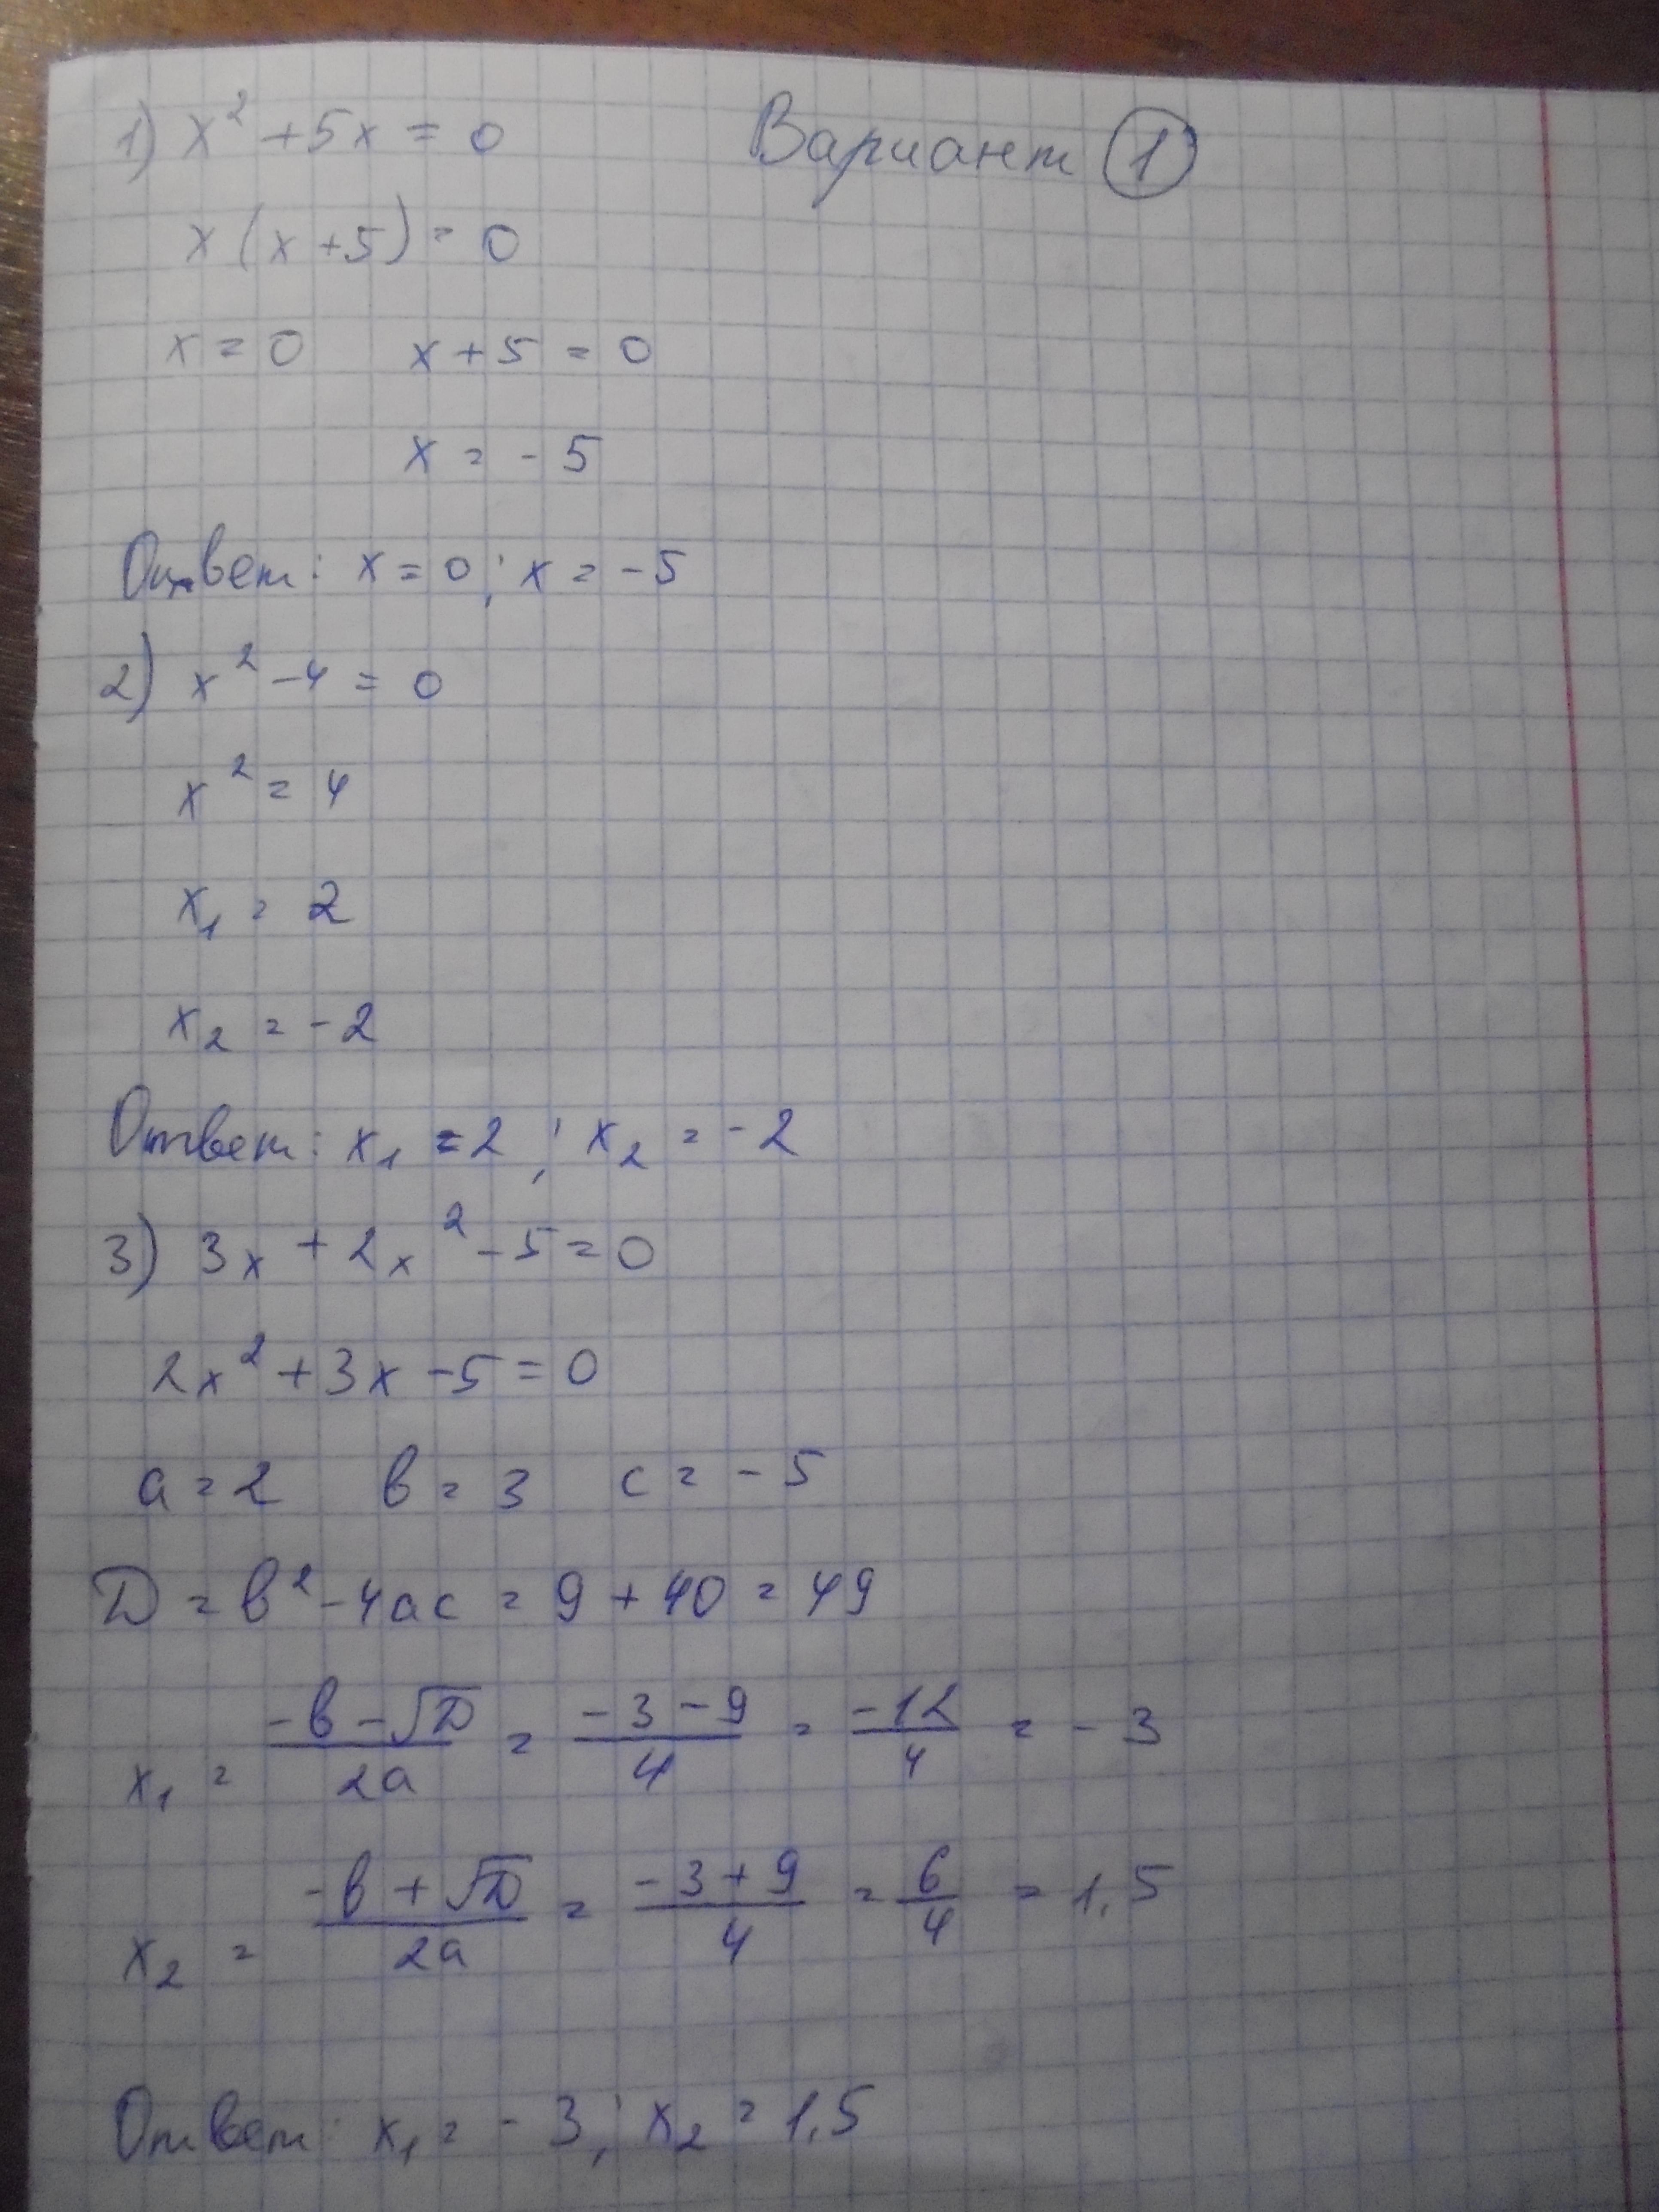 Вариант 1
1) x² + 5x = 0
x(x+5) = 0
x = 0 x + 5 = 0
x = - 5
Ответ: x = 0; x = -5
2) x² - 4 = 0
x² = 4
x₁ = 2
x₂ = -2
Ответ: x₁ = 2; x₂ = -2
3) 3x + 2x² - 5 = 0
2x² + 3x - 5 = 0
a = 2 в = 3 c = - 5
D = в² - 4ac = 9 + 40 = 49
x₁ = (-в - √D)/(2a) = (-3 - 9)/4 = -12/4 = - 3
x₂ = (-в + √D)/(2a) = (-3 + 9)/4 = 6/4 = 1,5
Ответ: x₁ = - 3; x₂ = 1,5